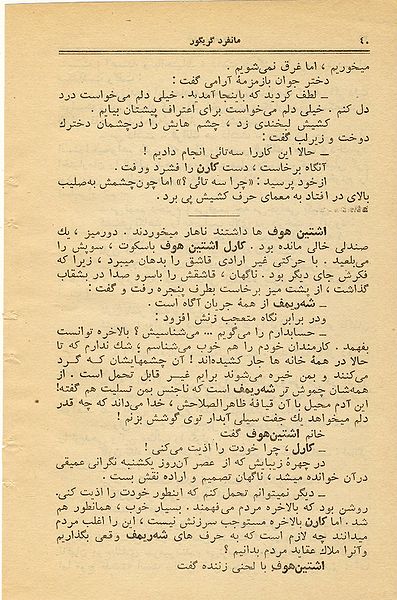 ۴۰
مانفرد گریگور
میخوریم ، اما غرق نمی‌شویم .
دختر جوان بازمزمهٔ آرامی گفت :
ـ لطف کردید که باینجا آمدید . خیلی دلم می‌خواست درد
دل کنم . خیلی دلم می‌خواست برای اعتراف پیشتان بیایم .
کشیش لبخندی زد ، چشم هایش را درچشمان دخترك
دوخت و زیرلب گفت :
ـ حالا این کاررا سه‌تائی انجام دادیم !
آنگاه برخاست ، دست کارن را فشرد ورفت .
ازخود پرسید : «چرا سه تائی ؟» اما چون‌چشمش به‌صلیب
بالای در افتاد به معمای حرف کشیش پی برد .
اشتین هوف ها داشتند ناهار میخوردند . دورمیز ، یك
صندلی خالی مانده بود . کارل اشتین هوف باسکوت ، سوپش را
می‌بلعید . با حرکتی غیر ارادی قاشق را بدهان میبرد ، زیرا که
فکرش جای دیگر بود . ناگهان ، قاشقش را باسرو صدا در بشقاب
گذاشت ، از پشت میز برخاست بطرف پنجره رفت و گفت :
ـ شه‌ریمف از همهٔ جریان آگاه است .
ودر برابر نگاه متعجب زنش افزود :
ـ حسابدارم را می‌گویم ... می‌شناسیش ؟ بالاخره توانست
بفهمد . کارمندان خودم را هم خوب می‌شناسم ، شك ندارم که تا
حالا در همهٔ خانه ها جار کشیده‌اند ! آن چشمهایشان کــه گــرد
می‌کنند و بمن خیره می‌شوند برایم غیــر قابل تحمل است . از
همه‌شان خموش تر شه‌ریمف است که ناجنس بمن تسلیت هم گفته!
این آدم محیل با آن قیافهٔ ظاهرالصلاحش ، خدا می‌داند که چه قدر
دلم میخواهد یك جفت سیلی آبدار توی گوشش بزنم !
خانم اشتین‌هوف گفت
ـ کارل ، چرا خودت را اذیت می‌کنی !
در چهرهٔ زیبایش که از عصر آن‌روز یکشنبه نگرانی عمیقی
درآن خوانده میشد ، ناگهان تصمیم و اراده نقش بست .
ـ دیگر نمیتوانم تحمل کنم که اینطور خودت را اذیت کنی.
روشن بود که بالاخره مردم می‌فهمند . بسیار خوب ، همانطور هم
شد . اما کارن بالاخره مستوجب سرزنش نیست ، این را اغلب مردم
میدانند چه لازم است که به حرف های شه‌ریمف وقعی بگذاریم
وآنرا ملاك عقاید مردم بدانیم ؟
اشتین‌هوف با لحنی زننده گفت